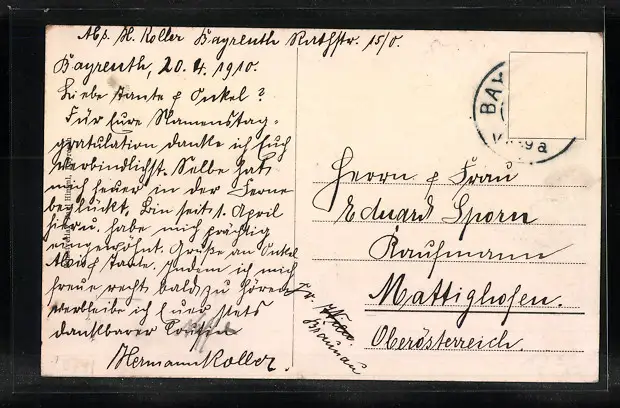 Abs. H. Koller Bayreuth Rathstr. 15/0.
Bayreuth, 20.4.1910.
Liebe Tante & Onkel?
Für Eure Namenstag-
gratulation danke ich Euch
verbindlichst. Selbe hat
mich heuer in der Ferne
beglückt. Bin seit 1. April
hier u. habe mich prächtig
eingewöhnt. Grüße an Onkel
Alois & Tante. Indem ich mich
freue recht bald zu hören
verbleibe ich Euer stets
dankbarer
Hermann Koller.
BAY
Herrn & Frau
Eduard Sporn
Kaufmann
Mattighofen.
Oberösterreich.
Braunau